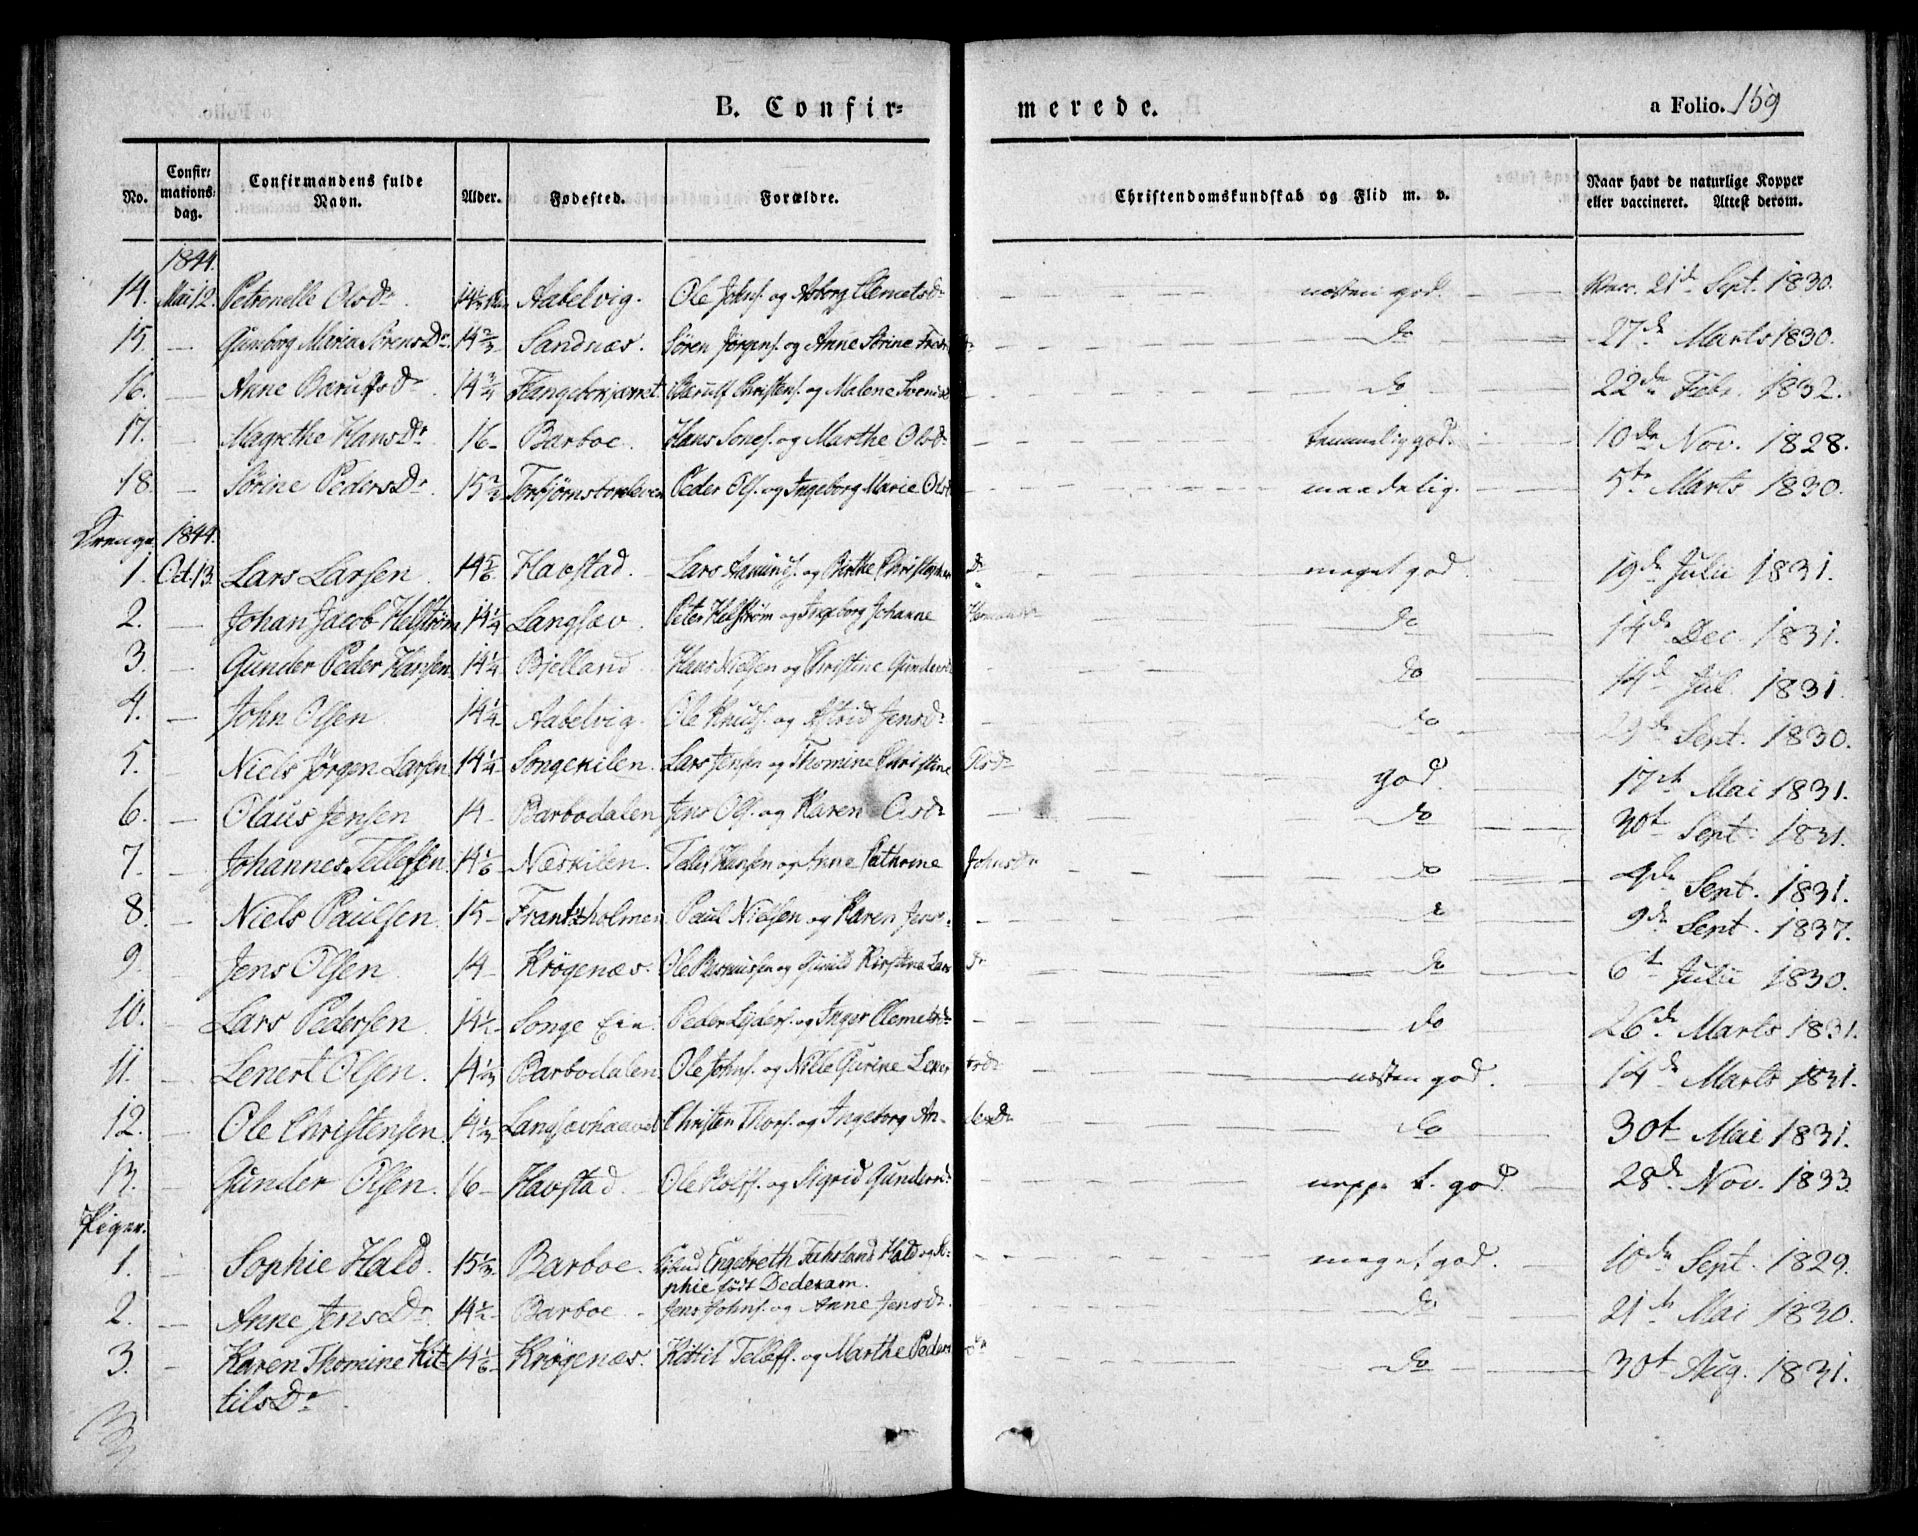 B. Confir=
merede.
a Folio. 159
No. Confir=mations=dag. Confirmandens fulde Navn. Alder. Fødested. Forældre. Christendomskundskab og Flid m. v. Naar havt de naturlige Kopper eller vaccineret. Attest derom.
1844.
14. Mai 12. Petronelle Olsdr. Aabelvig. Ole Johns. og Asborg Clemetsdr næsten god. Vacc. 21de Sept. 1830.
15. Gunborg Maria SørensDr. 14 2/3 Sandnæs. Søren Jørgens. og Anne Serine do 27de Marts 1830.
16. Anne Barulfsdr. 14 Barulf Christens. og Malene do 22de Febr. 1832.
17. Magrethe HansDr 16 Barboe. Hans Jones. og Marthe Olsdr temmelig god. 10de Nov. 1828.
18. Serine PedersDr. 15 Peder Ols. og Ingeborg Marie Olsdr maadelig. 5te Marts 1830.
Drenge 1844.
1. Oct. 13. Lars Larsen. 14 5/6 Havstad. Lars Aamunds. og Birthe Christopher Dr meget god. 19de Julii 1831.
2. Johan Jacob Helstrøm 14 1/4 Langsæv Peter Helstrøm og Ingeborg Johanne do 14de Dec. 1831.
3. Gunder Peder Hansen 14 1/4 Bjelland. Hans Nielsen og Christine Gunders do 14de Jul. 1831.
4. John Olsen 14 1/4 Aabelvig. Ole Knuds. og Astrid Jensdr do Sept. 1830.
5. Niels Jørgen Larsen 14 1/4 Songekilen. Lars Jensen og Thomine Christine Olsdr god. 17de Mai 1831.
6. Olaus Jensen 14 Barbodalen Jens Ols. og Karen Olsdr do 30t Sept. 1831.
7. Johannes Tellefsen. 14 1/6 Neskilen. Tellef Hansen og Anne Cathrine Johnsdr do 4de Sept. 1831.
8. Niels Paulsen. 15 Frantzholmen Paul Nielsen og Karen Jens do 9de Sept. 1837.
9. Jens Olsen 14 Krøgenæs. Ole Rasmusen og Gunild Kirstine Lars Dr do 6te Julii 1830.
10. Lars Pedersen 14 1/2 Songe Eie. Peder og Inger Clemetsdr do 26de Marts 1831.
11. Lenert Olsen. 14 1/3 Barbodalen Ole Johns. og Nille Gurine Lenertsdr næsten god. 14de Marts 1831.
12. Ole Christensen 14 1/3 Christen Thors. og Ingeborg An-dersDr do 30t Mai 1831.
13. Gunder Olsen. 16 Havstad. Ole Rolfs. og Sigrid Gundersdr neppe t. god. 28de Nov. 1833.
Piger.
1. Sophie Hald. 15 Barboe. Engebreth Hald og So=
phie født Dedekam. meget god. 10de Sept. 1829.
2. Anne JensDr. 14 1/2 Barboe Jens Johns. og Anne Jensdr. do 21de Mai 1830.
3. Karen Thomine Kit= 14 1/6 Krøgenæs. Kittil Tellefs. og Marthe Pedersdr do 30t Aug. 1831.
tilsDr.